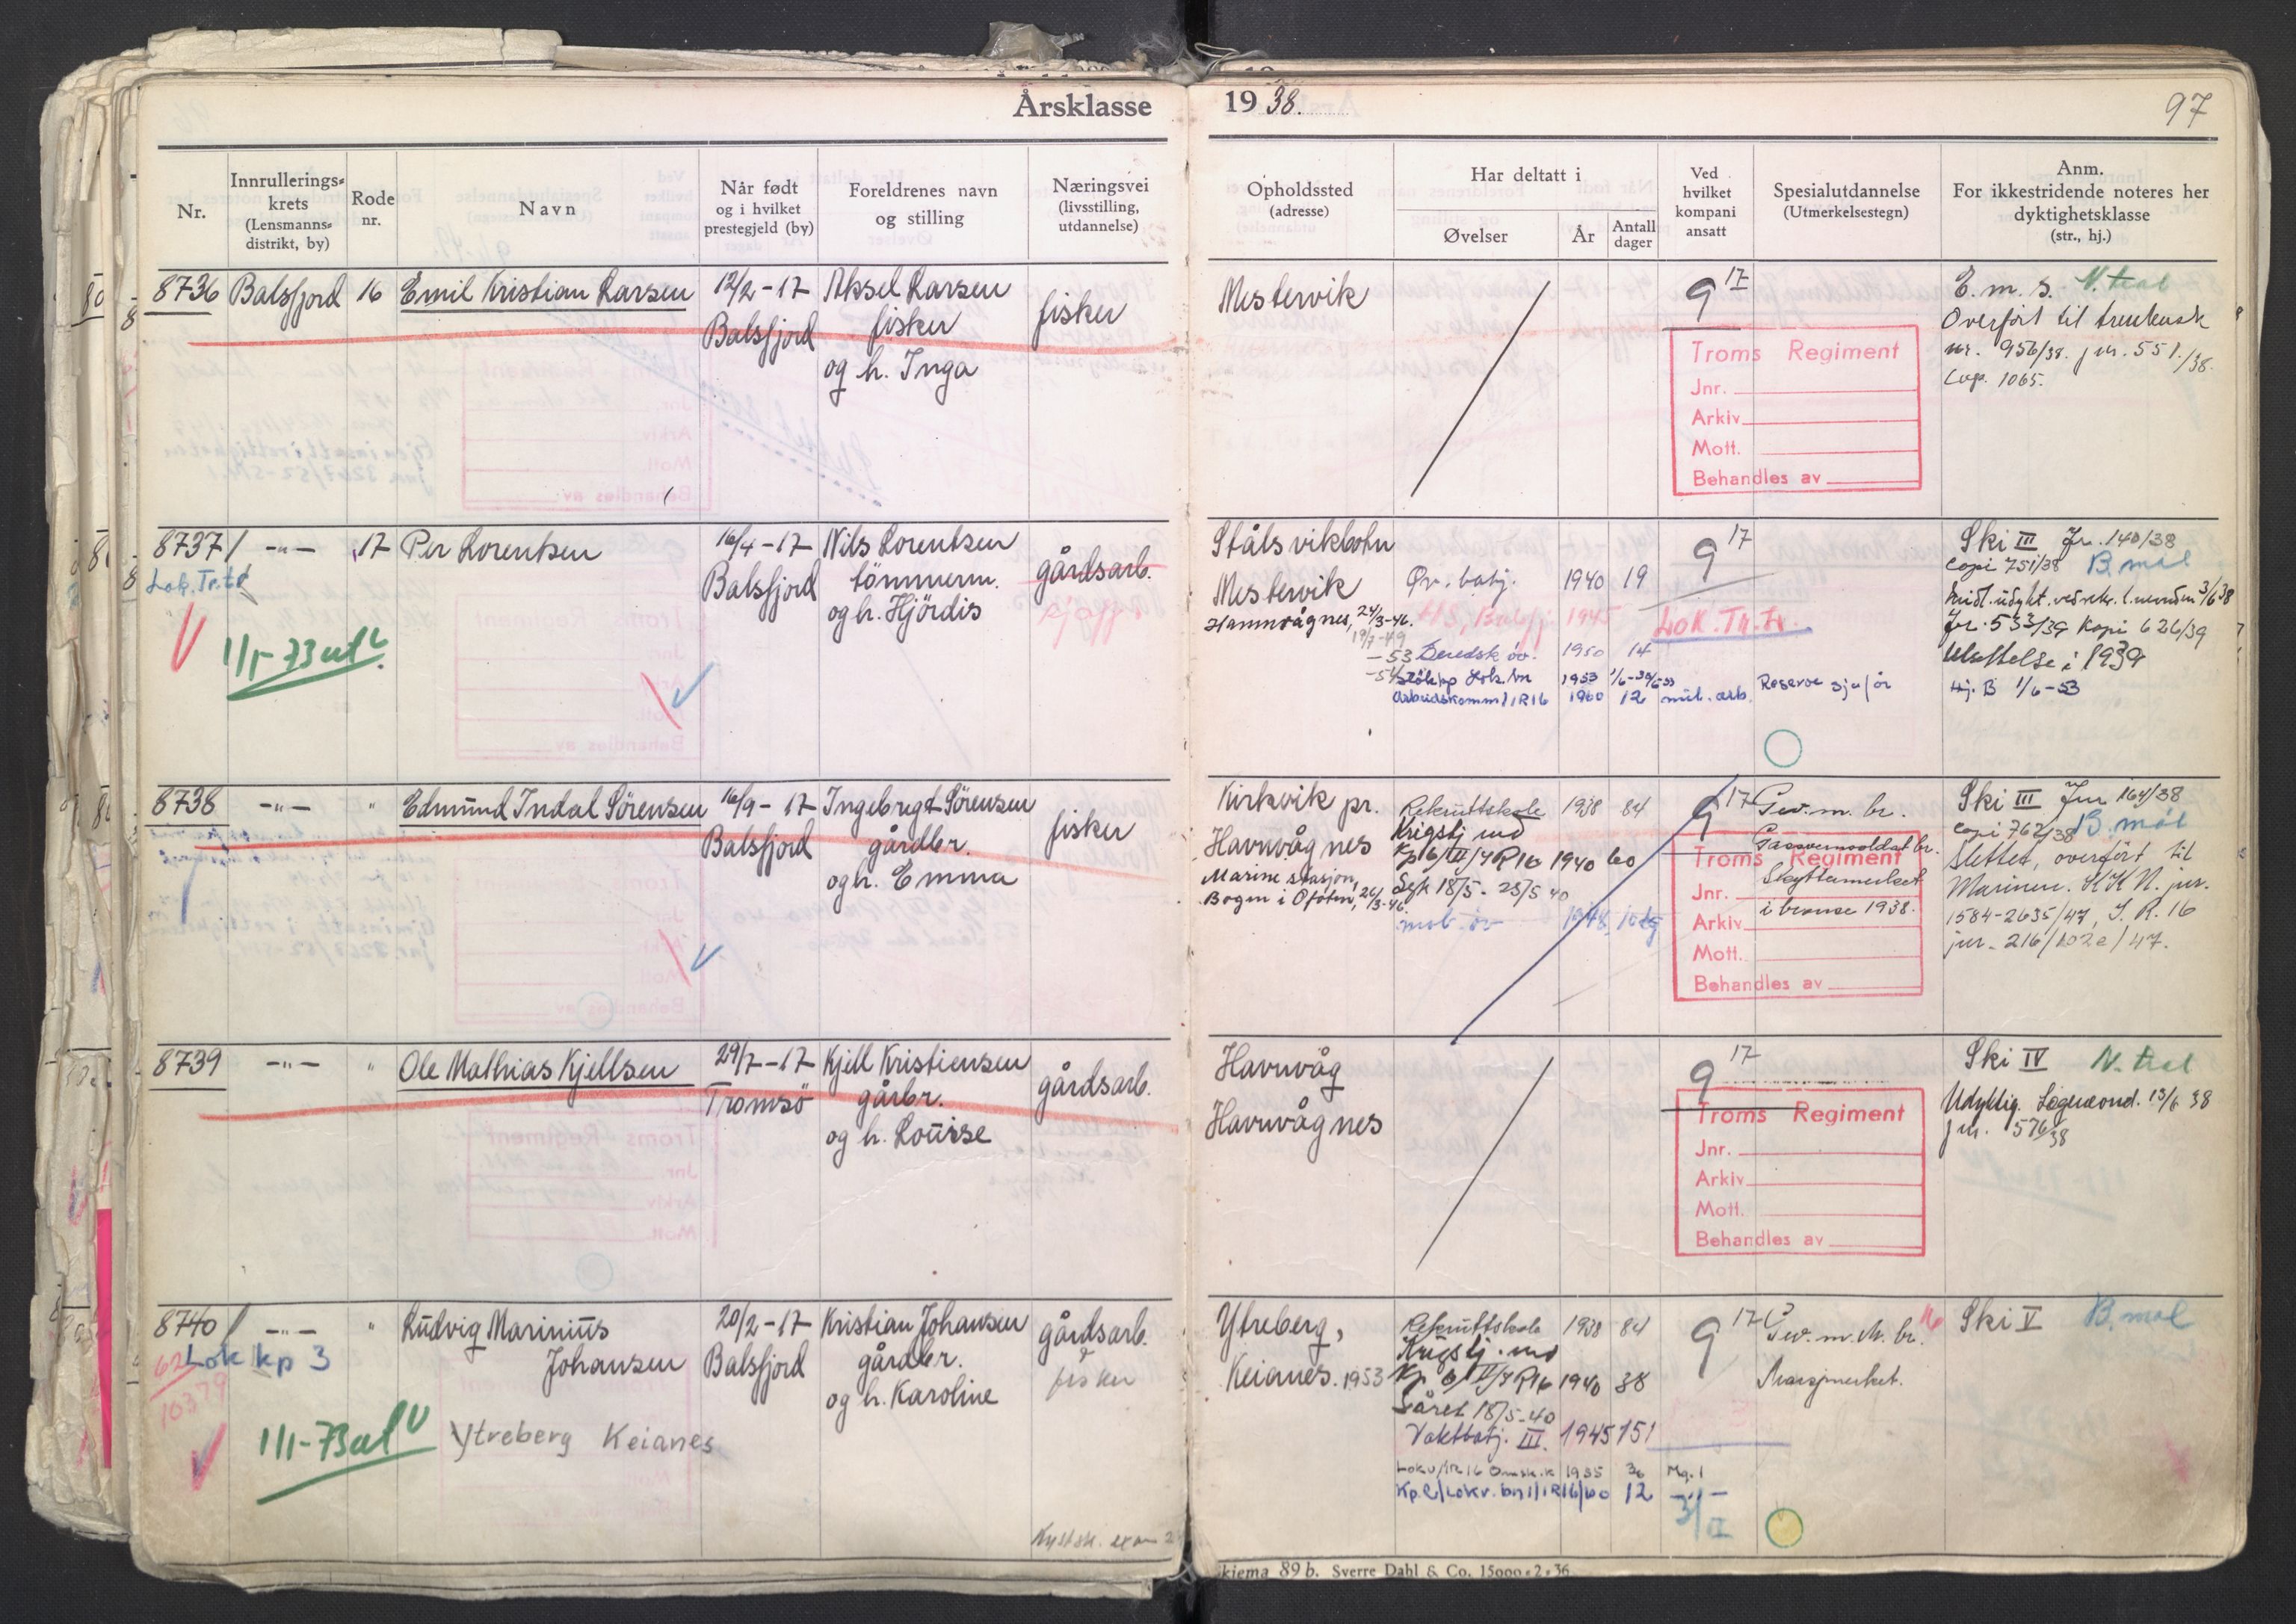 Årsklasse 1938.
97
Nr.
Innrullerings-
krets
(Lensmanns-
distrikt, by)
Rode
nr.
Navn
Når født
og i hvilket
prestegjeld (by)
Foreldrenes navn
og stilling
Næringsvei
(livsstilling,
utdannelse)
Opholdssted
(adresse)
Har deltatt i
Øvelser
År
Antall
dager
Ved
hvilket
kompani
ansatt
Spesialutdannelse
(Utmerkelsestegn)
Anm.
For ikkestridende noteres her
dyktighetsklasse
(str., hj.)
8736 Balsfjord 16 Emil Kristian Larsen
12/2-17
Balsfjord
Aksel Larsen
fisker
og h. Inga
fisker
Mestervik
9 17
Troms Regiment
Jnr.
Arkiv
Mott.
Behandles av
E. m. s. N. tral
Overført til
nr. 956/38. jnr. 551./38.
Cop. 1065.
8737 / -"- 17 Per Lorentsen
Lok.Tr.tr
1/1-73 utl
16/4-17
Balsfjord
Nils Lorentsen
tömmerm.
og h. Hjördis
gårdsarb.
Stålsvikbotn
Mestervik
Havnvågnes, 24/3-46.
19/9-49
-53
-54
Øv. batj. 1940 19
HS, Balsfj 1945
Beredsk öv. 1950 14
Lok. bn 1953 1/6-30/6-53
Arbeidskomm/IR16 1960 12 mil. arb.
9 17
Lok. Tr. Tr.
Reserve sjåför
Ski III Jr. 140/38
Copi 751/38 B. mål
Midl. udykt. ved rekr. l. nemden 3/6 38
Jr. 533/39 Kopi 626/39
Utsettelse i 1939
Hj. B 1/6-53
8738 -"- " Edmund Indal Sörensen
16/9-17
Balsfjord
Ingebrigt Sörensen
gårdbr.
og h. Emma
fisker
Kirkvik pr.
Havnvågnes
Marine stasjon,
Bogen i Ofoten, 26/3-46.
Rekruttskole 1938 84
Krigstj med
Kp 6/II/IR16 1940 60
Syk 18/5-25/5 40
mob. öv 1948 10 dg
9 17
Gev. m. br.
Gassvernsoldat br.
Skyttermerket
i bronse 1938.
Troms Regiment
Jnr.
Arkiv
Mott.
Behandles av
Ski III Jnr 164/38
Copi 762/38 B. mål
Slettet, overført til
Marinen. K.K.N. jnr.
1584-2635/47, I. R. 16
jnr. 216/102e/47.
8739 -"- " Ole Mathias Kjellsen
29/7-17
Tromsö
Kjell Kristiensen
gårbr.
og h. Louise
gårdsarb.
Havnvåg
Havnvågnes
9 17
Troms Regiment
Jnr.
Arkiv
Mott.
Behandles av
Ski IV N. tral
Udyktig. Legeund. 13/6 38
jnr. 576/38
8740 / -"- " Ludvig Marinius
Johansen
62 Lok kp 3
10379
1/1-73 utl
Ytreberg Keianes
20/2-17
Balsfjord
Kristian Johansen
gårdbr.
og h. Karoline
gårdsarb.
fisker
Ytreberg,
Keianes. 1953
Rekruttskole 1938 84
Krigstj. med
Kp 6/II/IR16 1940 38
Såret 18/5-40
Vaktbatj. III. 1945 151
Lokv/IR16 1955 30 Mg.1
Kp.2/Lokv.bn 1/IR16/60 12 -"-
3/II
9 17
Gev. m. M. br.
Marsjmerket.
Ski V B. mål
Kystsk.
skjema 89 b. Sverre Dahl & Co. 15000-2-36